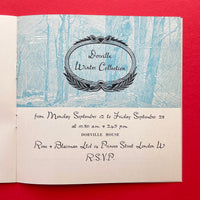 Dorville
Winter Collection
from Monday September 12 to Friday September 28
at 10.30 a.m. & 2.45 p.m.
DORVILLE HOUSE
Rose & Blairman Ltd 12 Princes Street London W
R.S.V.P.